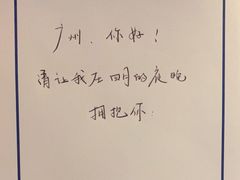 广州，你好！
请让我在四月的夜晚
拥抱你.